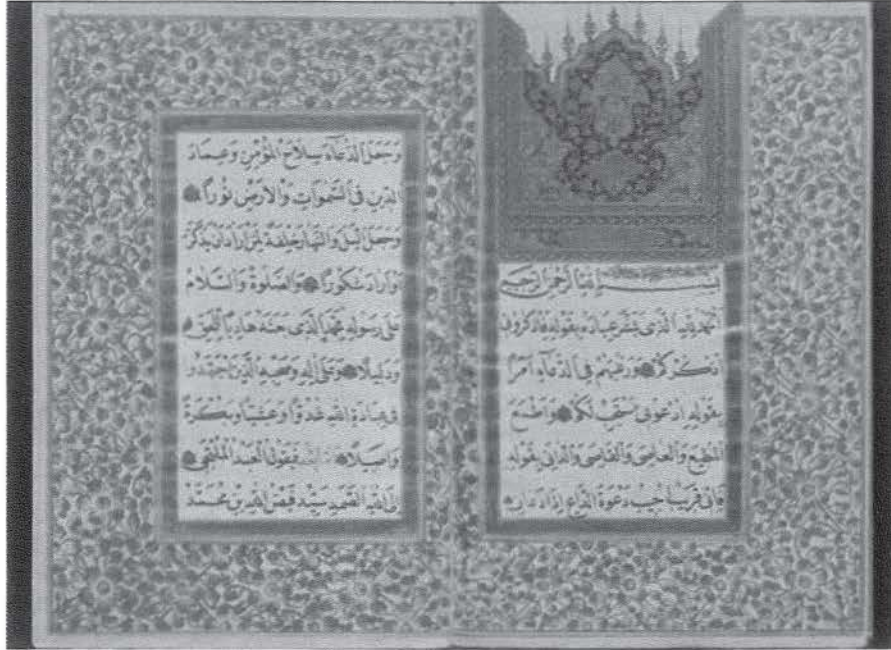 بِسْمِ اللهِ الرَّحْمٰنِ الرَّحِيمِ
اَلْحَمْدُ لِلّٰهِ الَّذِى بَشَّرَ عِبَادَهُ بِقَوْلِهِ فَاذْكُرُونِى
اَذْكُرْكُمْ وَرَغَّبَهُمْ فِى الدُّعَآءِ اٰمِرًا
بِقَوْلِهِ اُدْعُونِى اَسْتَجِبْ لَكُمْ وَاَطْمَعَ
الْمُطِيعَ وَالْعَاصِىَ وَالْقَاصِىَ وَالدَّانِىَ بِقَوْلِهِ
فَاِنِّى قَرِيبٌ اُجِيبُ دَعْوَةَ الدَّاعِ اِذَا دَعَانِ
وَجَعَلَ الدُّعَآءَ سِلَاحَ الْمُؤْمِنِ وَعِمَادَ
الدِّينِ فِى السَّمٰوَاتِ وَالْاَرْضِ نُورًا
وَجَعَلَ الَّيْلَ وَالنَّهَارَ خِلْفَةً لِمَنْ اَرَادَ اَنْ يَذَّكَّرَ
اَوْ اَرَادَ شُكُورًا وَالصَّلٰوةُ وَالسَّلَامُ
عَلٰى رَسُولِهِ مُحَمَّدٍ الَّذِى هَادِيًا
وَدَلِيلًا وَعَلٰى اٰلِهِ وَصَحْبِهِ الَّذِينَ اجْتَهَدُوا
فِى عِبَادَةِ اللهِ غُدُوًّا وَعَشِيًّا وَبُكْرَةً
وَاَصِيلًا فَيَقُولُ الْعَبْدُ الْمُلْتَجِى
اِلَى اللهِ الصَّمَدِ سَيِّد فَيْضُ اللهِ بْنُ مُحَمَّد